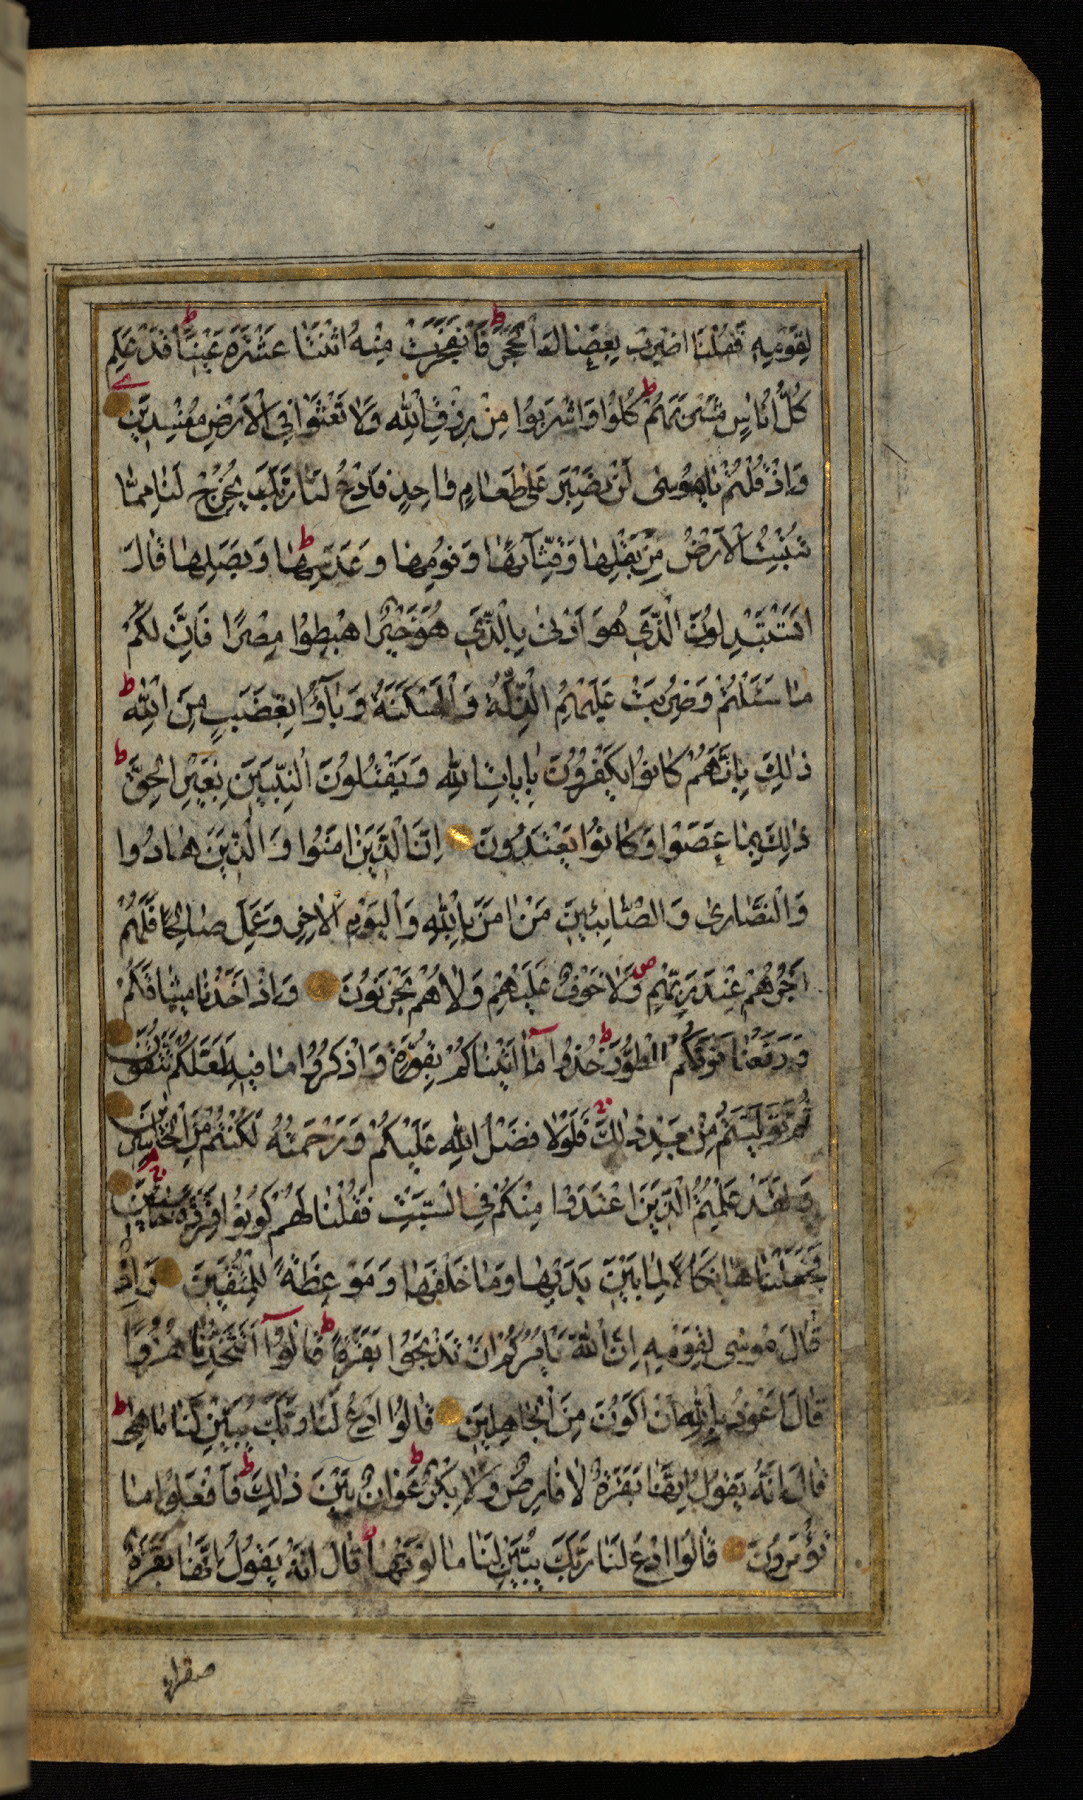 لِقَوْمِهِ فَقُلْنَا اضْرِبْ بِعَصَاكَ الْحَجَرَ ط فَانْفَجَرَتْ مِنْهُ اثْنَتَا عَشْرَةَ عَيْنًا ط قَدْ عَلِمَ
كُلُّ اُنَاسٍ مَشْرَبَهُمْ ط كُلُوا وَاشْرَبُوا مِنْ رِزْقِ اللهِ وَلَا تَعْثَوْا فِى الْاَرْضِ مُفْسِدِينَ
وَاِذْ قُلْتُمْ يَامُوسٰى لَنْ نَصْبِرَ عَلٰى طَعَامٍ وَاحِدٍ فَادْعُ لَنَا رَبَّكَ يُخْرِجْ لَنَا مِمَّا
تُنْبِتُ الْاَرْضُ مِنْ بَقْلِهَا وَقِثَّآئِهَا وَفُومِهَا وَعَدَسِهَا وَبَصَلِهَا ط قَالَ
اَتَسْتَبْدِلُونَ الَّذِى هُوَ اَدْنٰى بِالَّذِى هُوَ خَيْرٌ اهْبِطُوا مِصْرًا فَاِنَّ لَكُمْ
مَا سَئَلْتُمْ وَضُرِبَتْ عَلَيْهِمُ الذِّلَّةُ وَالْمَسْكَنَةُ وَبَآؤُا بِغَضَبٍ مِنَ اللهِ ط
ذٰلِكَ بِاَنَّهُمْ كَانُوا يَكْفُرُونَ بِاٰيَاتِ اللهِ وَيَقْتُلُونَ النَّبِيّٖنَ بِغَيْرِ الْحَقِّ ط
ذٰلِكَ بِمَا عَصَوْا وَكَانُوا يَعْتَدُونَ اِنَّ الَّذِينَ اٰمَنُوا وَالَّذِينَ هَادُوا
وَالنَّصَارٰى وَالصَّابِئِينَ مَنْ اٰمَنَ بِاللهِ وَالْيَوْمِ الْاٰخِرِ وَعَمِلَ صَالِحًا فَلَهُمْ
اَجْرُهُمْ عِنْدَ رَبِّهِمْ ص وَلَا خَوْفٌ عَلَيْهِمْ وَلَا هُمْ يَحْزَنُونَ وَاِذْ اَخَذْنَا مِيثَاقَكُمْ
وَرَفَعْنَا فَوْقَكُمُ الطُّورَ ط خُذُوا مَآ اٰتَيْنَاكُمْ بِقُوَّةٍ وَاذْكُرُوا مَا فِيهِ لَعَلَّكُمْ تَتَّقُونَ
ثُمَّ تَوَلَّيْتُمْ مِنْ بَعْدِ ذٰلِكَ فَلَوْلَا فَضْلُ اللهِ عَلَيْكُمْ وَرَحْمَتُهُ لَكُنْتُمْ مِنَ الْخَاسِرِينَ
وَلَقَدْ عَلِمْتُمُ الَّذِينَ اعْتَدَوْا مِنْكُمْ فِى السَّبْتِ فَقُلْنَا لَهُمْ كُونُوا قِرَدَةً خَاسِئِينَ
فَجَعَلْنَاهَا نَكَالًا لِمَا بَيْنَ يَدَيْهَا وَمَا خَلْفَهَا وَمَوْعِظَةً لِلْمُتَّقِينَ وَاِذْ
قَالَ مُوسٰى لِقَوْمِهِ اِنَّ اللهَ يَاْمُرُكُمْ اَنْ تَذْبَحُوا بَقَرَةً ط قَالُوآ اَتَتَّخِذُنَا هُزُوًا
قَالَ اَعُوذُ بِاللهِ اَنْ اَكُونَ مِنَ الْجَاهِلِينَ قَالُوا ادْعُ لَنَا رَبَّكَ يُبَيِّنْ لَنَا مَا هِىَ ط
قَالَ اِنَّهُ يَقُولُ اِنَّهَا بَقَرَةٌ لَا فَارِضٌ وَلَا بِكْرٌ ط عَوَانٌ بَيْنَ ذٰلِكَ ط فَافْعَلُوا مَا
تُؤْمَرُونَ قَالُوا ادْعُ لَنَا رَبَّكَ يُبَيِّنْ لَنَا مَا لَوْنُهَا ط قَالَ اِنَّهُ يَقُولُ اِنَّهَا بَقَرَةٌ
صفراء